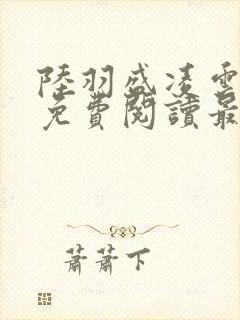 陸羽盛凌雲
免費閱讀最
蕭蕭下